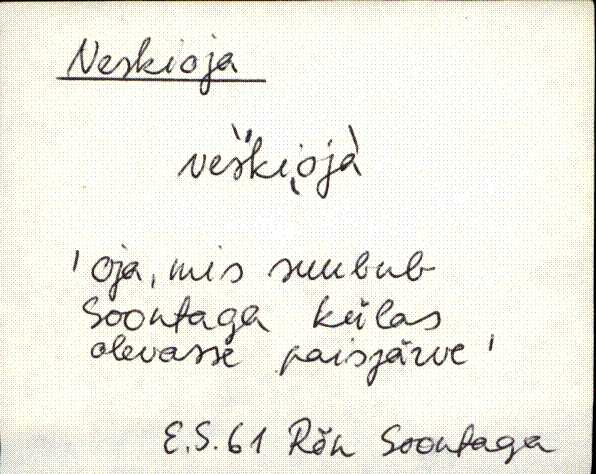 Neskioja
veski̮oja
'oja, mis suubub
Soontaga külas
olevasse paisjärve'
E.S. 61 Rõn Soontaga